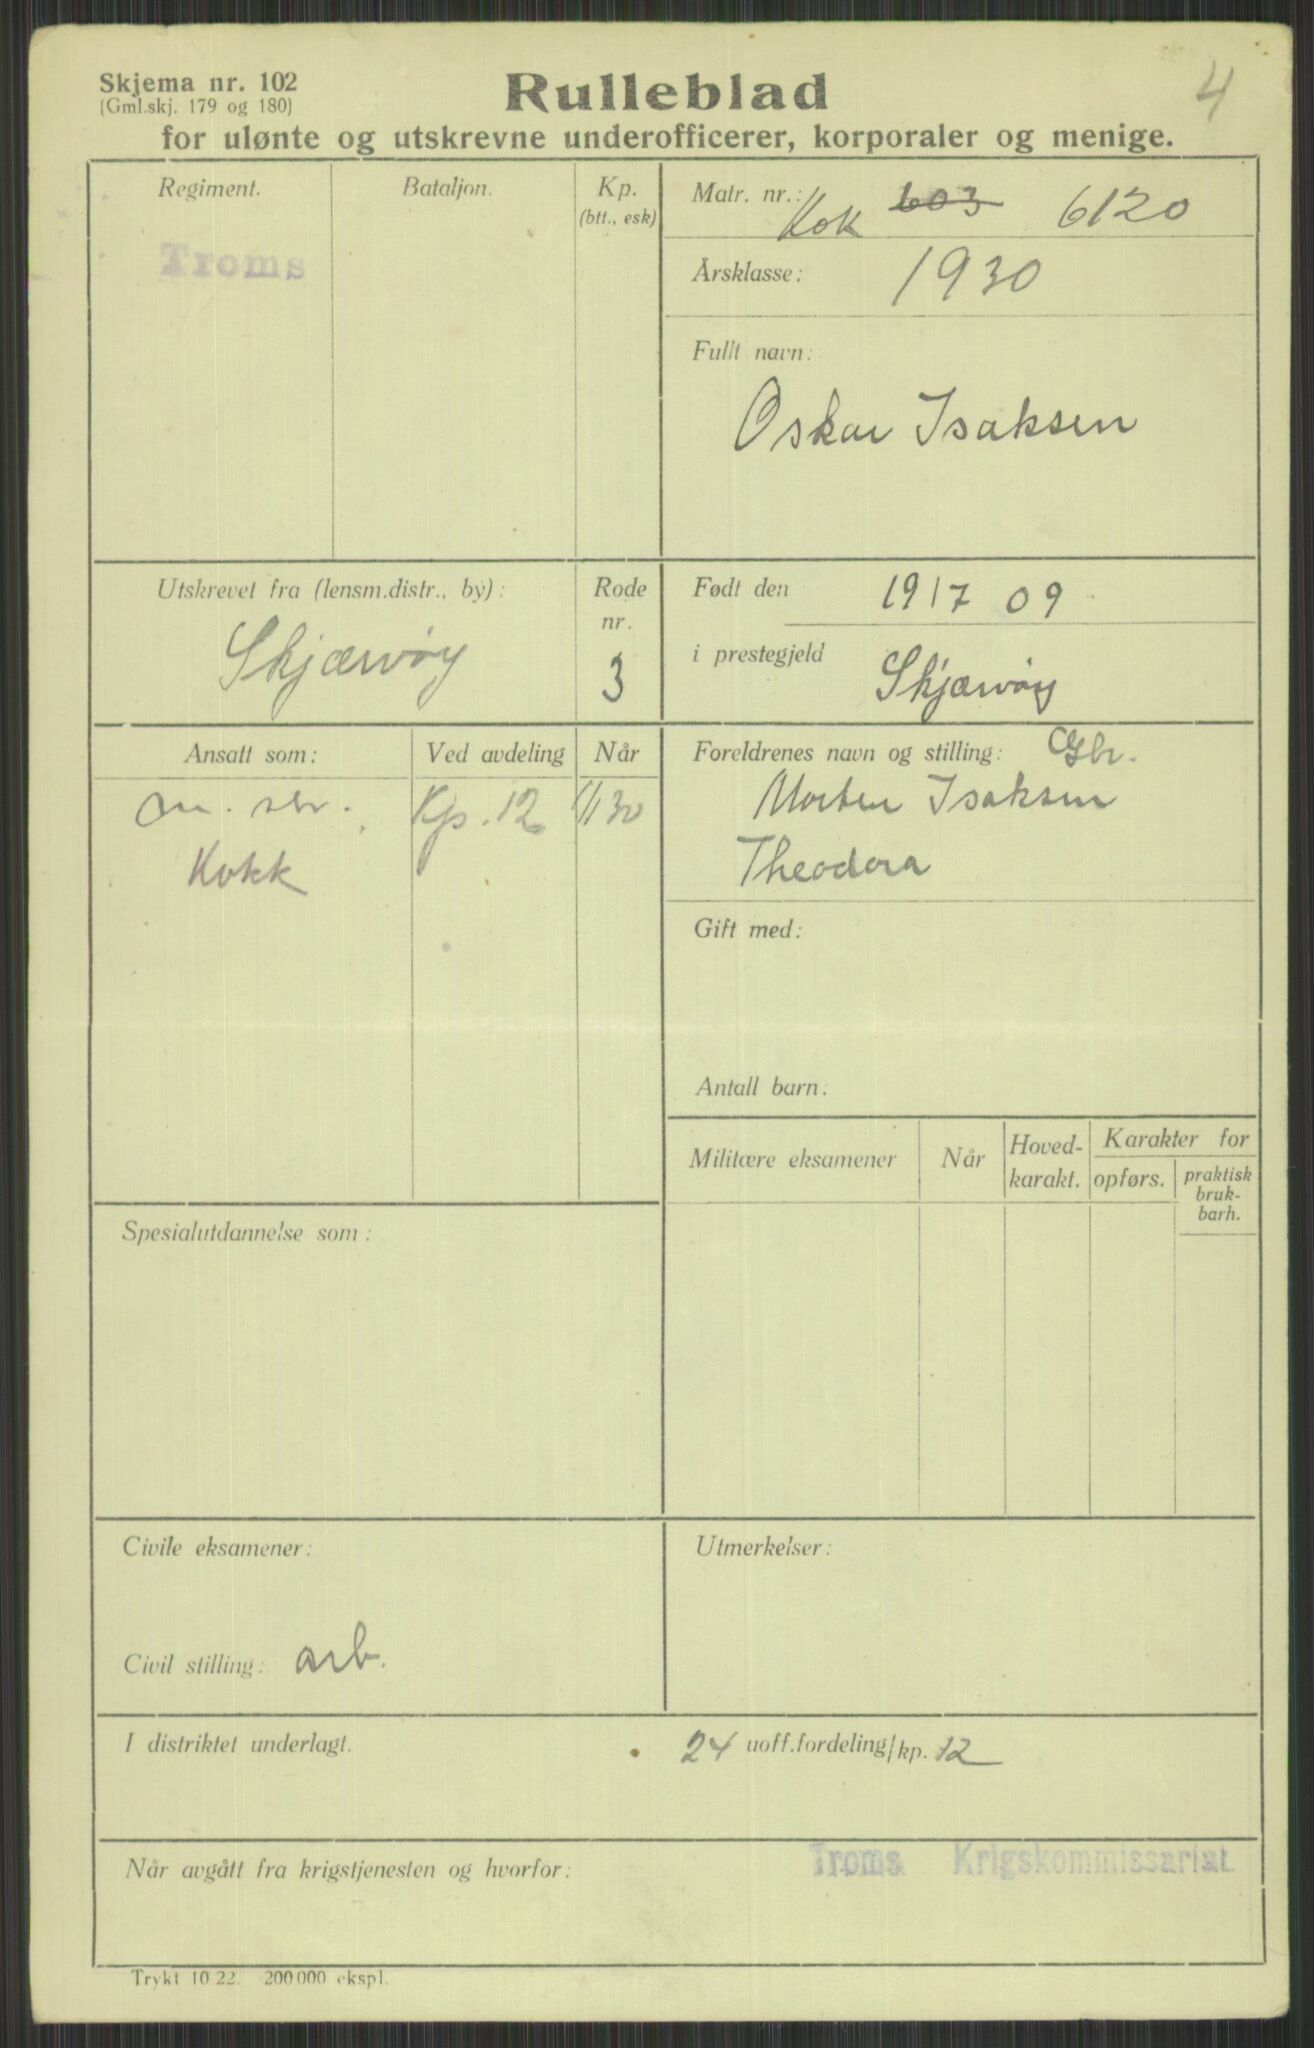 Skjema nr. 102
(Gml.skj. 179 og 180)
Rulleblad
4
for ulønte og utskrevne underofficerer, korporaler og menige.
Regiment.
Bataljon.
Kp.
(btt., esk)
Troms
Matr. nr.: Kok 603 6120
Årsklasse: 1930
Fullt navn:
Oskar Isaksen
Utskrevet fra (lensm.distr., by):
Skjærvøy
Rode
nr.
3
Født den 1917 09
i prestegjeld Skjærvøy
Ansatt som:
Ved avdeling
Når
Kp. 12
1/1 30
Kokk
Foreldrenes navn og stilling: Gbr.
Morten Isaksen
Theodora
Gift med:
Antall barn:
Militære eksamener
Når
Hoved-
karakt.
Karakter for
opførs.
praktisk
bruk-
barh.
Spesialutdannelse som:
Civile eksamener:
Civil stilling: arb.
Utmerkelser:
I distriktet underlagt.
24 uoff.fordeling/kp. 12
Når avgått fra krigstjenesten og hvorfor:
Troms Krigskommissariat
Trykt 10 22. 200 000 ekspl.